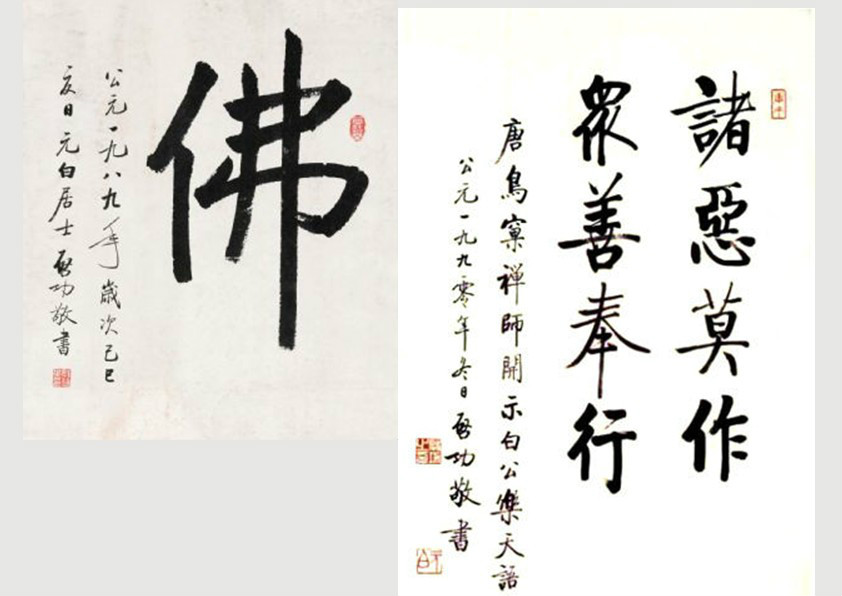 佛
公元一九八九年歲次己巳
夏日元白居士啓功敬書
諸惡莫作
眾善奉行
唐鳥窠禪師開示白公樂天語
公元一九九零年冬日啓功敬書